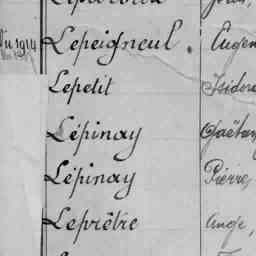 Lepeigneul. Eugen
Lepetit Isidore
Lépinay Gaëtan
Lépinay Pierre
Leprêtre Ange,